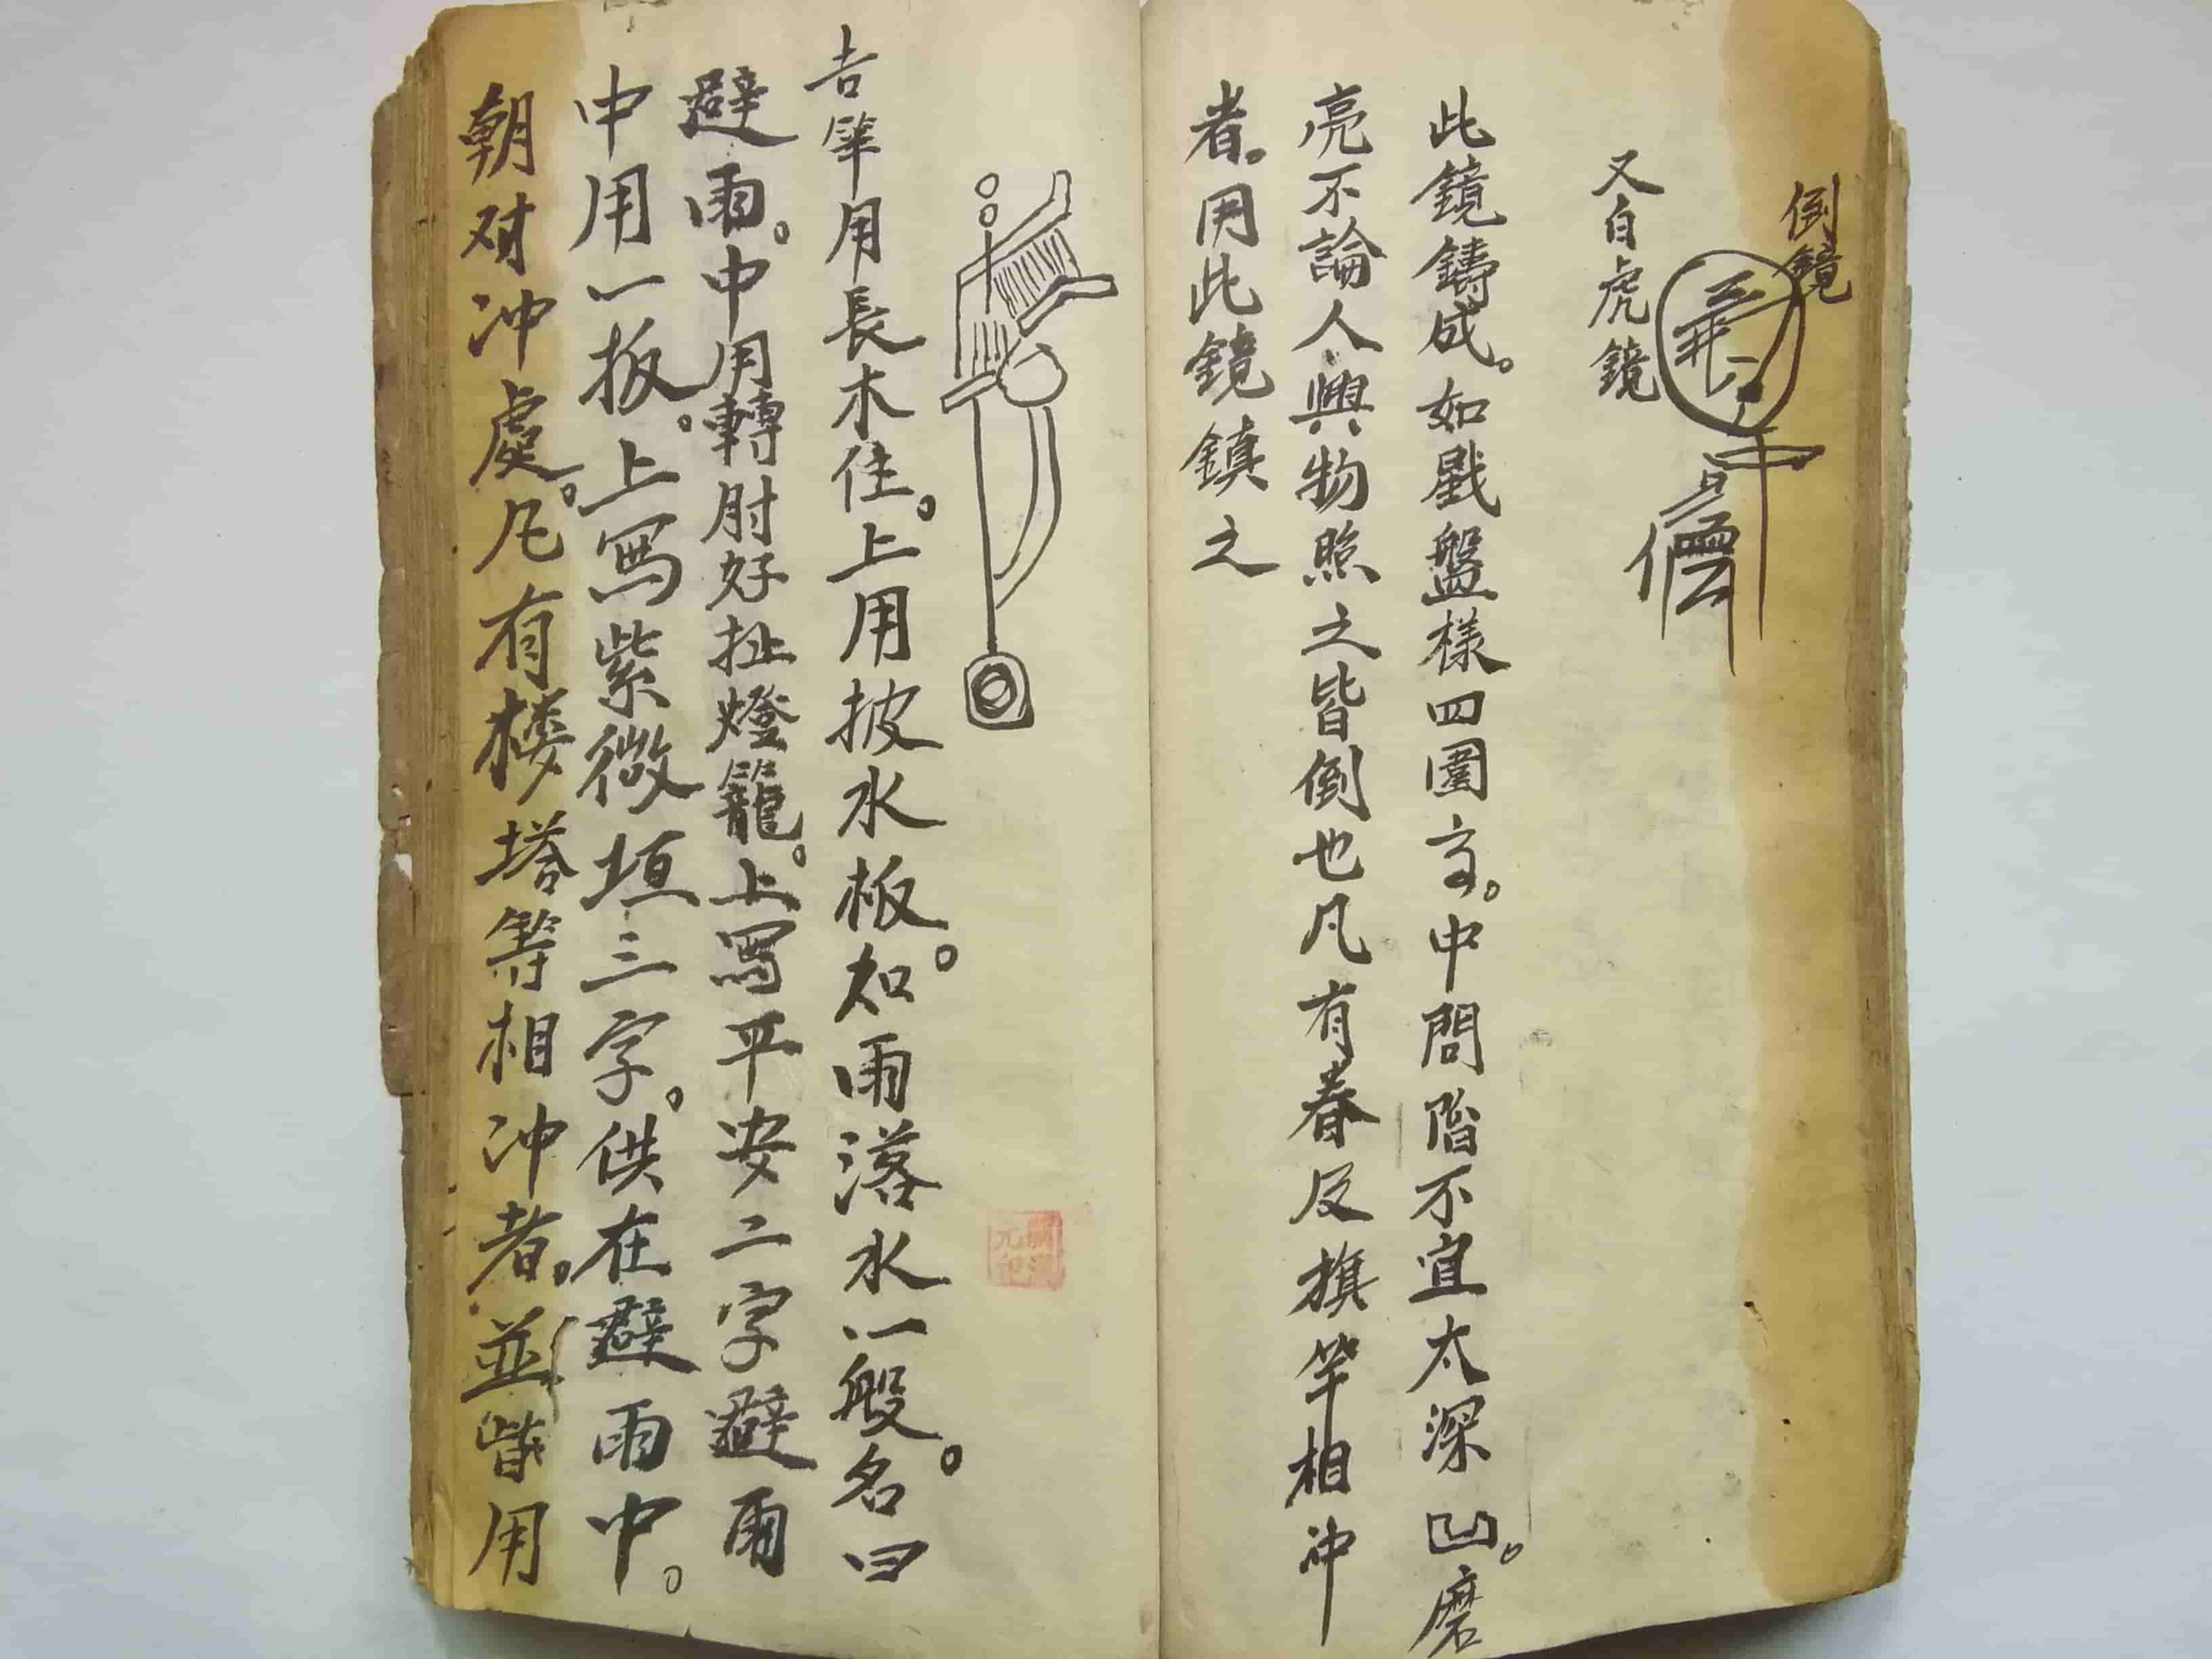 倒鏡
又白虎鏡
此鏡鑄成。如戥盤樣四圍高。中間陷不宜太深凹。磨
亮不論人與物照之皆倒也凡有春及旗竿相冲
者。用此鏡鎮之
吉竿用長木住。上用披水板。如雨落水一般。名曰
避雨。中用轉肘好扯燈籠。上寫平安二字避雨
中用一板。上寫紫微垣三字。供在避雨中。
朝对冲處。凡有楼塔等相冲者。並皆用